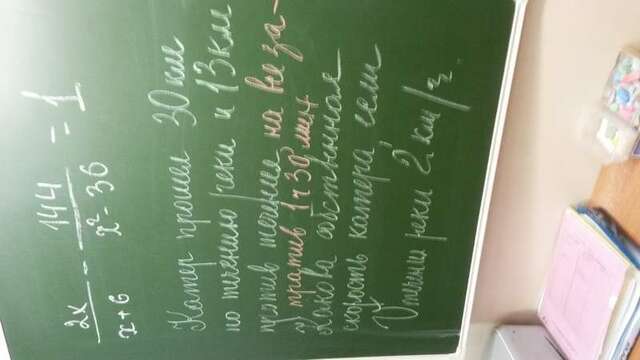 2x/x+6 - 144/x²-36 = 1
Катер прошел 30 км
по течению реки и 13 км
против течения на все за-
тратив 1 ч 30 мин
Какова собственная
скорость катера, если
V течения реки 2 км/ч.